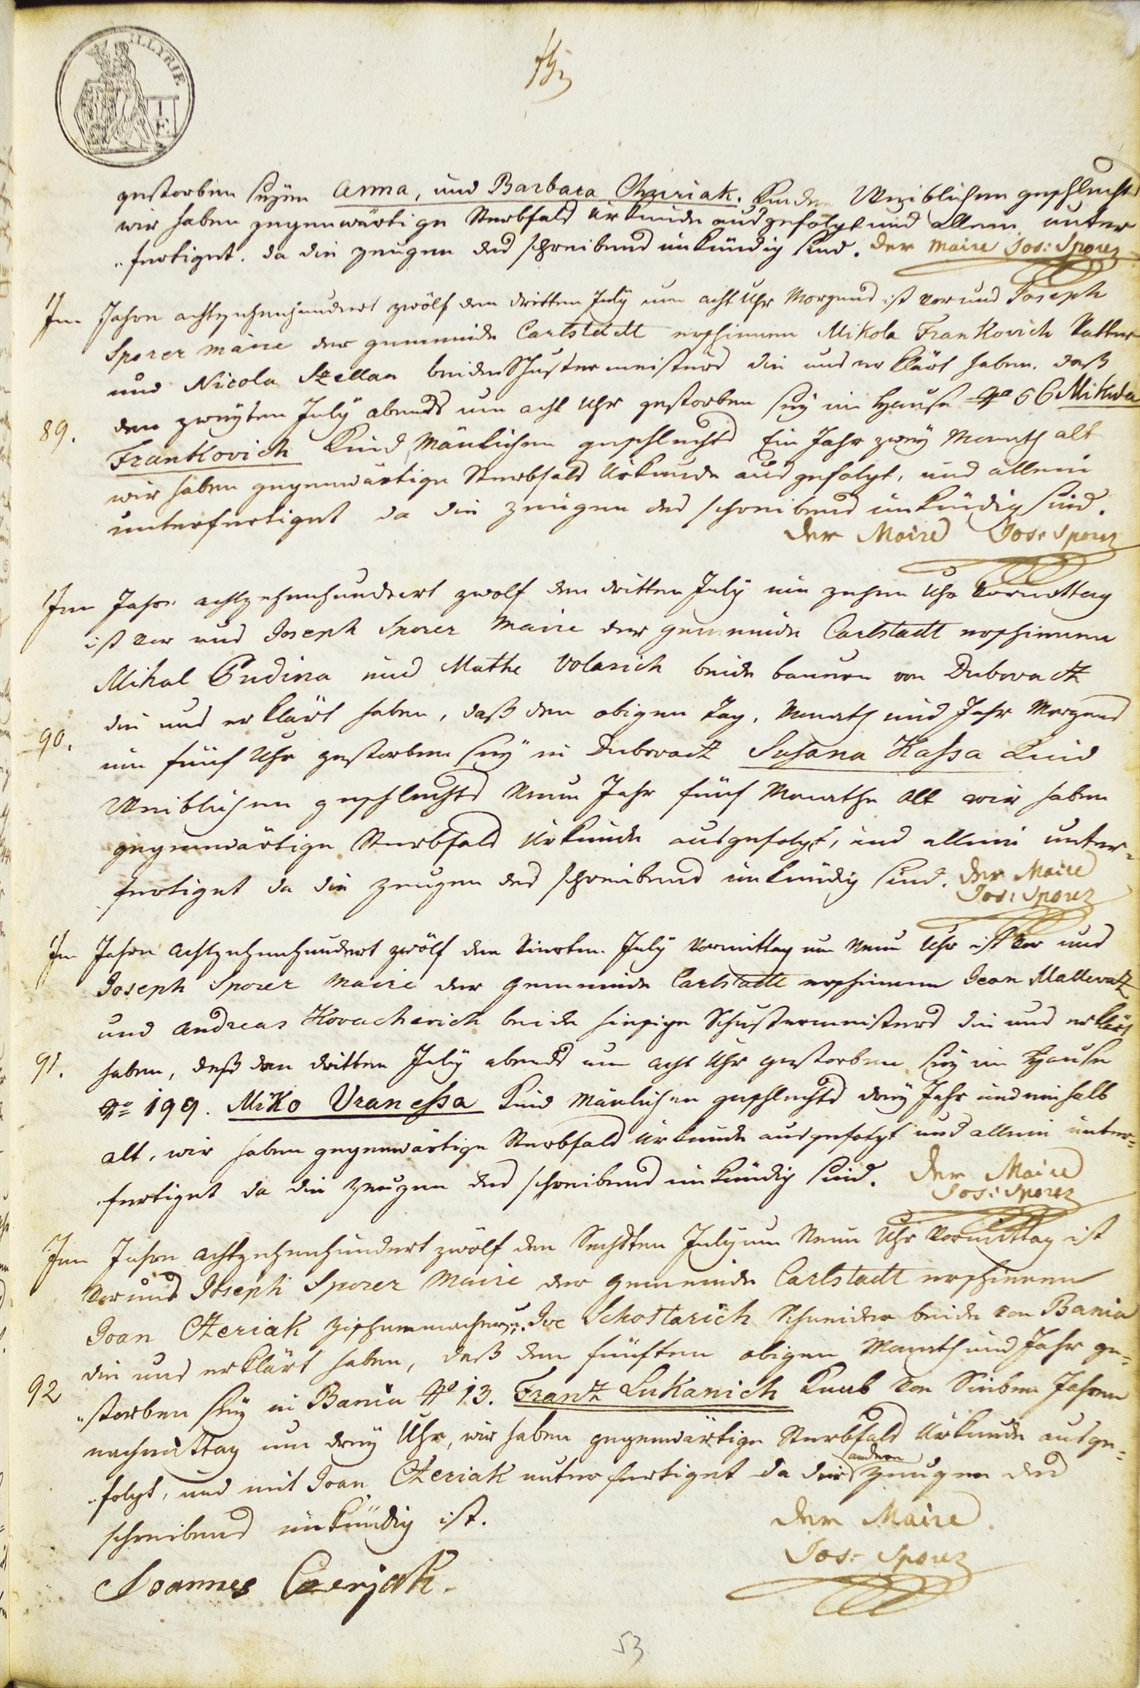 ILLYRIE
gestorben seyen Anna, und Barbara Kinder Weiblichen geschlechts
wir haben gegenwärtige Sterbfalds Urkunde ausgefolgt und allein unter
"fertiget. da die zeugen des schreibens unkündig sind. der Maire Jos: Sporer
Im Jahre achtzehenhundert zwölf den dritten July um acht Uhr Morgens ist vor uns Joseph
Sporer Maire der gemeinde Carlstadt erschienen Mikola Frankovich Vatter
und Nicola Szellan beide Schustermeisters die uns erklärt haben. daß
den zweyten July abends um acht Uhr gestorben sey im Hause No 66
89.
Frankovich Kind Mänlichen geschlechts Ein Jahr zwey Monath alt
wir haben gegenwärtige Sterbfalds Urkunde ausgefolgt, und allein
unterfertiget da die zeugen des schreibens unkündig sind.
der Maire Jos: Sporer
Im Jahre achtzehenhundert zwölf den dritten July um zehen Uhr vormittag
ist vor uns Joseph Sporer Maire der gemeinde Carlstadt erschienen
Mihal Gudina und Mathe Volarich beide bauern von Dubovacz
die uns erklärt haben, daß den obigen Tag, Monath und Jahr Morgens
90.
um fünf Uhr gestorben sey in Dubovacz Susana Kassa Kind
Weiblichen geschlechts Neun Jahr fünf Monathe alt wir haben
gegenwärtige Sterbfalds Urkunde ausgefolgt, und allein unter=
fertiget da die zeugen des schreibens unkündig sind. der Maire
Jos: Sporer
Im Jahre achtzehenhundert zwölf den Vierten July vormittag um Neun Uhr ist vor uns
Joseph Sporer Maire der Gemeinde Carlstadt erschienen Jean
und Andreas Kovachevich beide hiesige Schustermeisters die uns erklärt
91.
haben, daß den dritten July abends um acht Uhr gestorben sey im Hause
No 199. Miko Vranessa Kind Mänlichen geschlechts drey Jahr und einhalb
alt, wir haben gegenwärtige Sterbfalds Urkunde ausgefolgt und allein unter=
fertiget da die zeugen des schreibens unkündig sind. der Maire
Jos: Sporer
Im Jahre achtzehenhundert zwölf den Sechsten July um Neun Uhr vormittag ist
vor uns Joseph Sporer Maire der Gemeinde Carlstadt erschienen
Joan Czeriak Zischmenmacher u: Ive Schostarich Schneider beide von Bania
die uns erklärt haben, daß den fünften obigen Monath und Jahr ge=
92
"storben sey in Bania No 13. Franz Lukanich Knab von Sieben Jahren
nachmittag um drey Uhr, wir haben gegenwärtige Sterbfalds Urkunde ausge=
"folgt, und mit Joan Czeriak unterfertiget da die andere zeugen des
schreibens unkündig ist.
der Maire
Jos: Sporer
Joannes Czerjak.
53